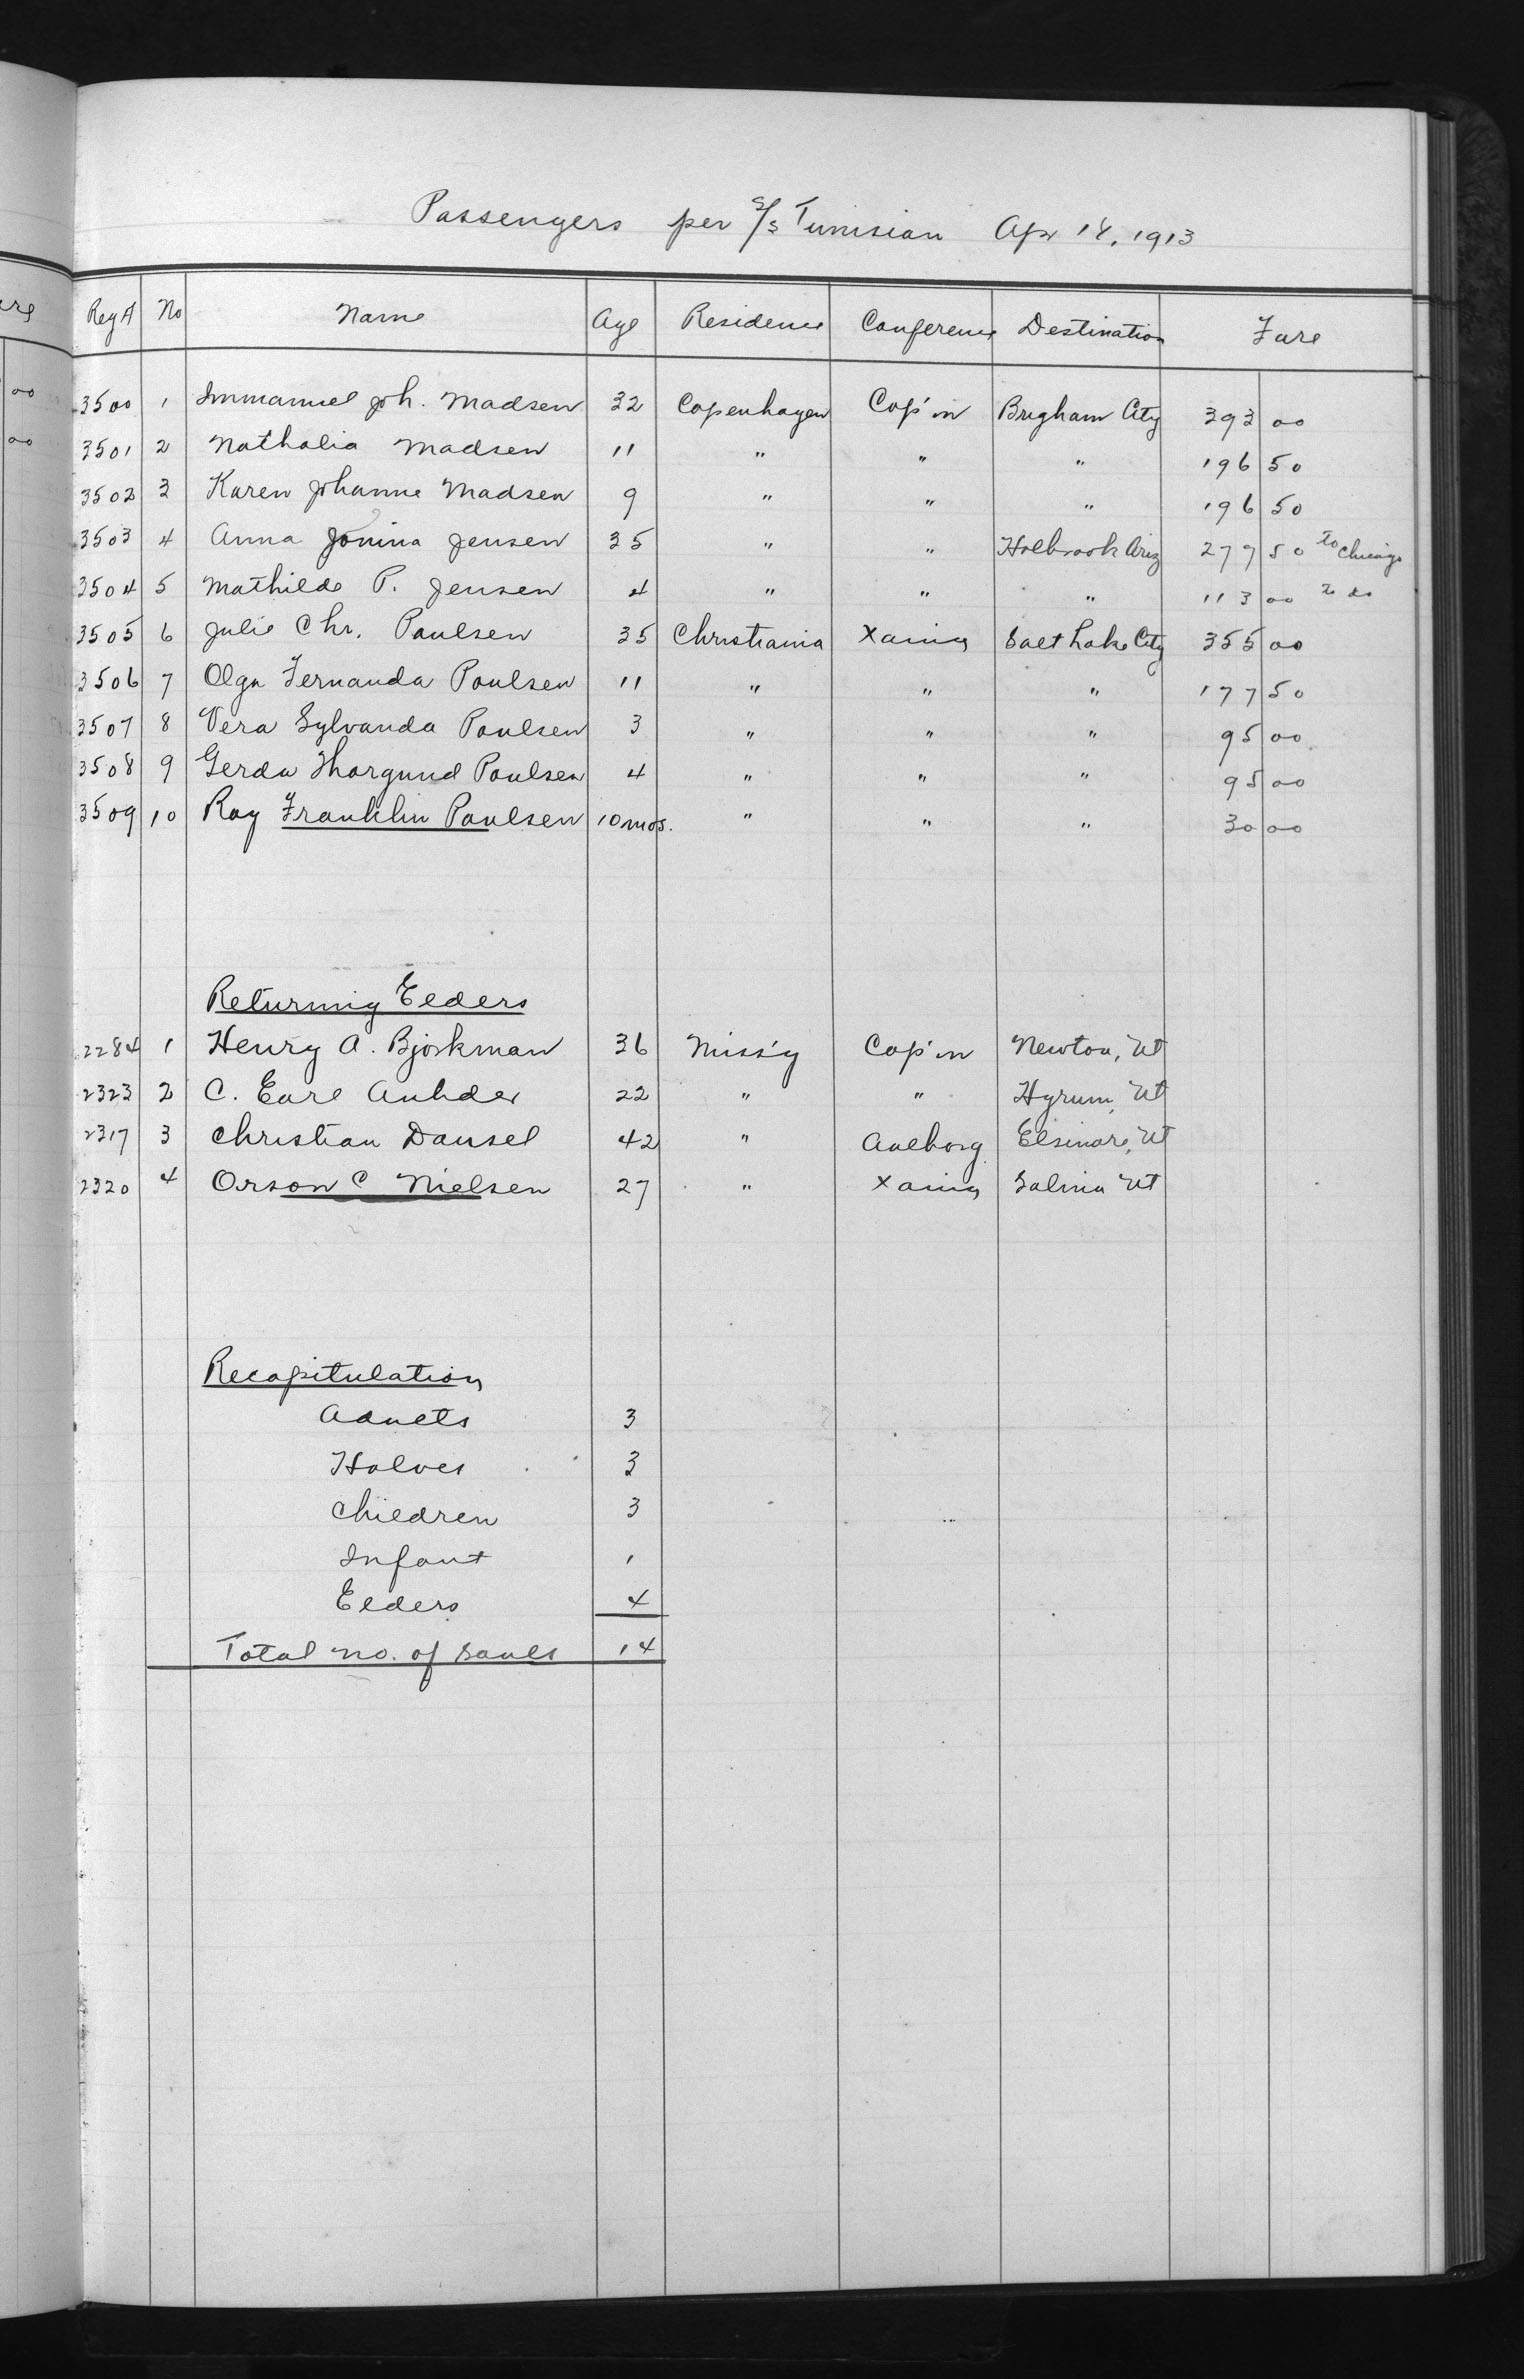 Passengers per S/S Tunisian Apr 14, 1913
Reg A No Name Age Residence Conference Destination Fare
3500 1 Immanuel Joh. Madsen 32 Copenhagen Cop'in Brigham City 393 00
3501 2 Nathalia Madsen 11 " " " 196 50
3502 3 Karen Johanne Madsen 9 " " " 196 50
3503 4 Anna Jonina Jensen 35 " " Holbrook Ariz 279 50 to Chicago
3504 5 Mathilde P. Jensen 4 " " " 113 00 " do
3505 6 Julie Chr. Paulsen 35 Christiania Xania Salt Lake City 355 00
3506 7 Olga Fernanda Poulsen 11 " " " 177 50
3507 8 Vera Sylvanda Poulsen 3 " " " 95 00
3508 9 Gerda Thorgund Poulsen 4 " " " 95 00
3509 10 Roy Franklin Paulsen 10 mos. " " " 30 00
Returning Elders
2284 1 Henry A. Bjorkman 36 Miss'y Cop'in Newton, Ut
2323 2 C. Earl Anhder 22 " " Hyrum, Ut
2317 3 Christian Dansel 42 " Aalborg Elsinore, Ut
2320 4 Orson C Nielsen 27 " Xania Salina Ut
Recapitulation
Adults 3
Halves 3
Children 3
Infant 1
Elders 4
Total no. of souls 14
are
00
00